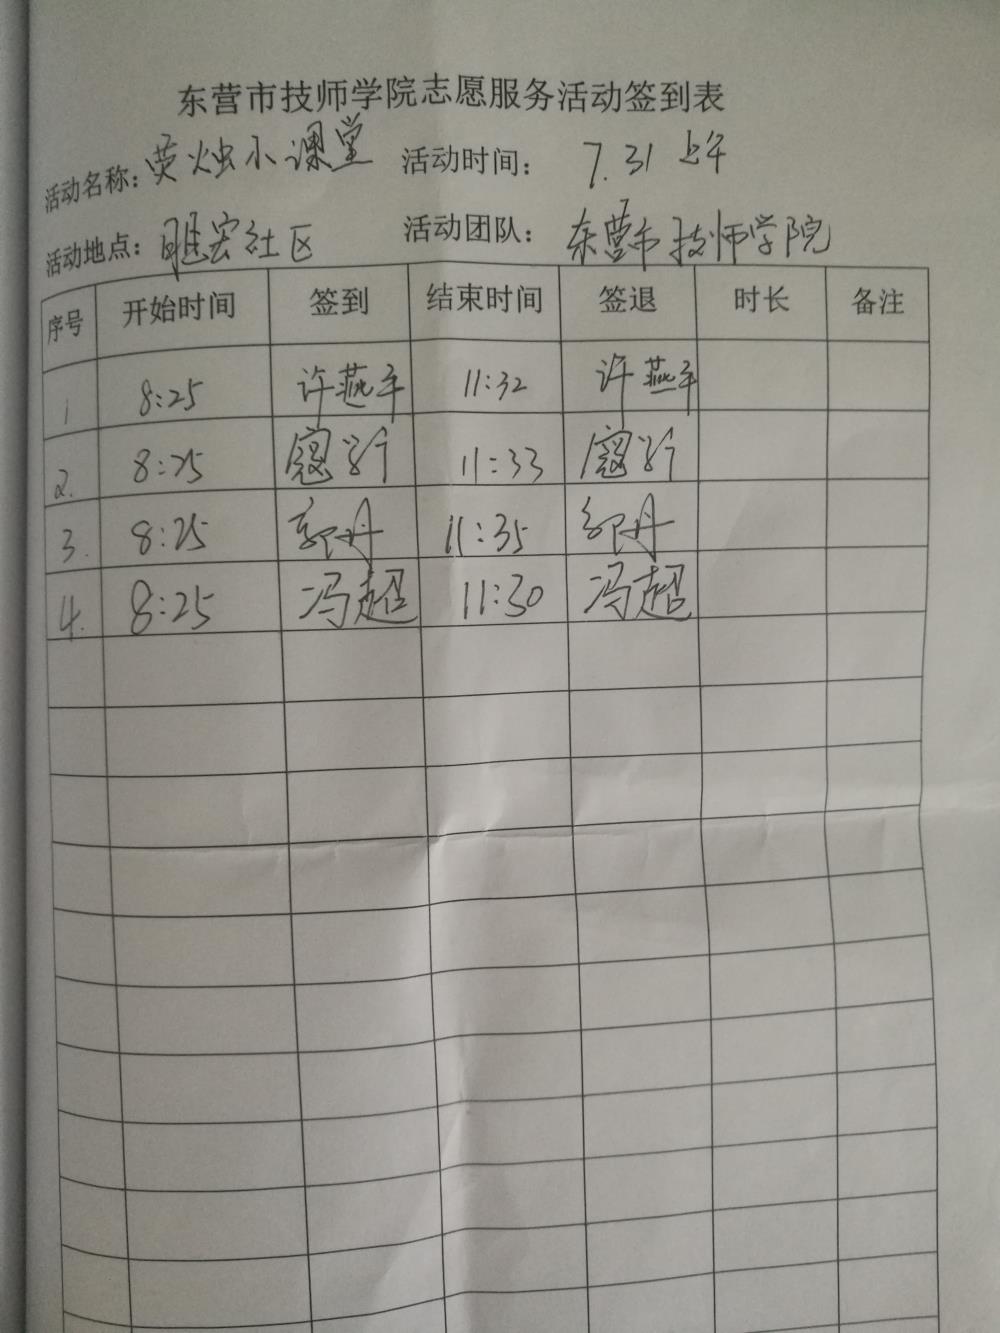 东营市技师学院志愿服务活动签到表
活动名称：荧烛小课堂 活动时间： 7.31 上午
活动地点：宏社区 活动团队：东营市技师学院
序号 开始时间 签到 结束时间 签退 时长 备注
1 8:25 许燕平 11:32 许燕平
2. 8:25 寇 11:33 寇
3. 8:25 郭丹 11:35 郭丹
4. 8:25 冯超 11:30 冯超